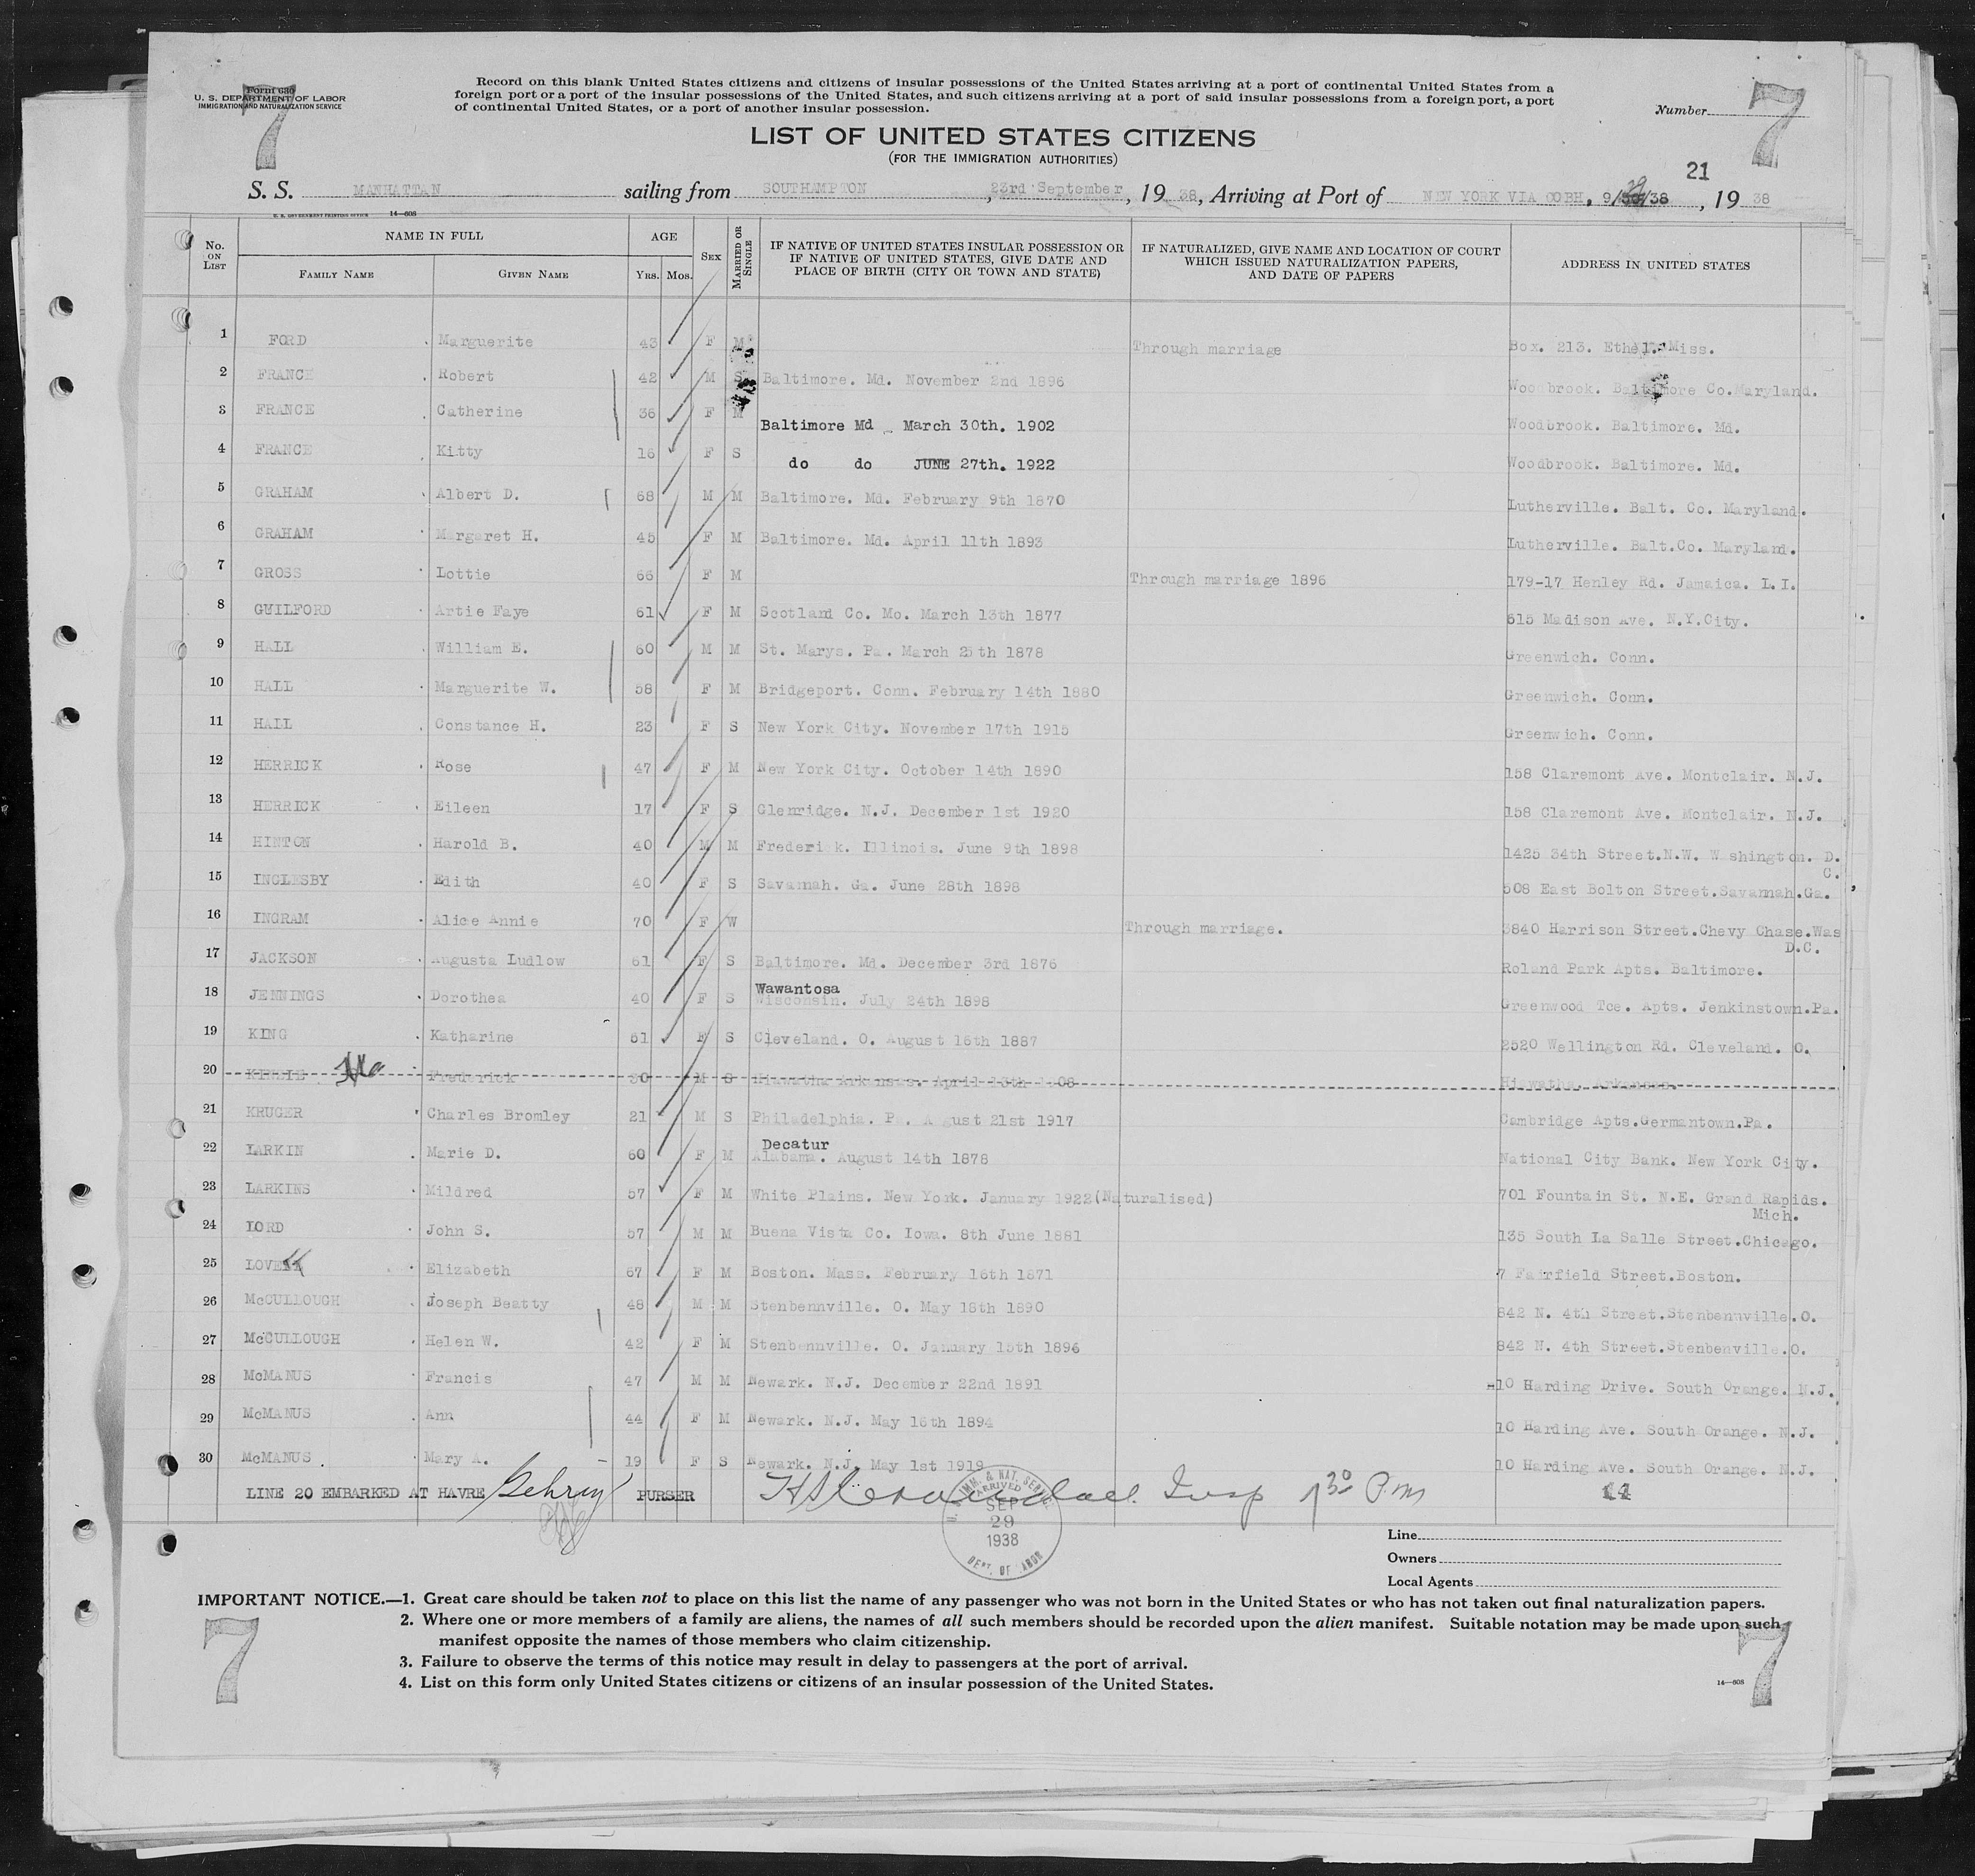 7
Form 630
U. S. DEPARTMENT OF LABOR
IMMIGRATION AND NATURALIZATION SERVICE
Record on this blank United States citizens and citizens of insular possessions of the United States arriving at a port of continental United States from a
foreign port or a port of the insular possessions of the United States, and such citizens arriving at a port of said insular possessions from a foreign port, a port
of continental United States, or a port of another insular possession.
Number
7
LIST OF UNITED STATES CITIZENS
(FOR THE IMMIGRATION AUTHORITIES)
21
S. S. MANHATTAN sailing from SOUTHAMPTON, 23rd September, 19 38, Arriving at Port of NEW YORK VIA COBH, 9/29/38, 19 38
U. S. GOVERNMENT PRINTING OFFICE 14—608
No. ON LIST NAME IN FULL FAMILY NAME GIVEN NAME AGE YRS. MOS. SEX MARRIED OR SINGLE IF NATIVE OF UNITED STATES INSULAR POSSESSION OR IF NATIVE OF UNITED STATES, GIVE DATE AND PLACE OF BIRTH (CITY OR TOWN AND STATE) IF NATURALIZED, GIVE NAME AND LOCATION OF COURT WHICH ISSUED NATURALIZATION PAPERS, AND DATE OF PAPERS ADDRESS IN UNITED STATES
1 FORD Marguerite 43 F M Through marriage Box. 213. Ethel. Miss.
2 FRANCE Robert 42 M S Baltimore. Md. November 2nd 1896 Woodbrook. Baltimore Co.Maryland.
3 FRANCE Catherine 36 F M Baltimore Md March 30th. 1902 Woodbrook. Baltimore. Md.
4 FRANCE Kitty 16 F S do do JUNE 27th. 1922 Woodbrook. Baltimore. Md.
5 GRAHAM Albert D. 68 M M Baltimore. Md. February 9th 1870 Lutherville. Balt. Co. Maryland.
6 GRAHAM Margaret H. 45 F M Baltimore. Md. April 11th 1893 Lutherville. Balt.Co. Maryland.
7 GROSS Lottie 66 F M Through marriage 1896 179-17 Henley Rd. Jamaica. L.I.
8 GUILFORD Artie Faye 61 F M Scotland Co. Mo. March 13th 1877 515 Madison Ave. N.Y.City.
9 HALL William E. 60 M M St. Marys. Pa. March 25th 1878 Greenwich. Conn.
10 HALL Marguerite W. 58 F M Bridgeport. Conn. February 14th 1880 Greenwich. Conn.
11 HALL Constance H. 23 F S New York City. November 17th 1915 Greenwich. Conn.
12 HERRICK Rose 47 F M New York City. October 14th 1890 158 Claremont Ave. Montclair. N.J.
13 HERRICK Eileen 17 F S Glenridge. N.J. December 1st 1920 158 Claremont Ave. Montclair. N.J.
14 HINTON Harold B. 40 M M Frederick. Illinois. June 9th 1898 1425 34th Street.N.W. Washington. D.
C.
15 INGLESBY Edith 40 F S Savannah. Ga. June 28th 1898 508 East Bolton Street.Savannah.Ga.
16 INGRAM Alice Annie 70 F W Through marriage. 3840 Harrison Street.Chevy Chase.Was
D.C.
17 JACKSON Augusta Ludlow 61 F S Baltimore. Md. December 3rd 1876 Roland Park Apts. Baltimore.
Wawantosa
18 JENNINGS Dorothea 40 F S Wisconsin. July 24th 1898 Greenwood Tce. Apts. Jenkinstown.Pa.
19 KING Katharine 51 F S Cleveland. O. August 15th 1887 2520 Wellington Rd. Cleveland. O.
20 Frederick 30 M S Hiawatha Arkansas. April 13th 1908 Hiawatha. Arkansas.
21 KRUGER Charles Bromley 21 M S Philadelphia. Pa. August 21st 1917 Cambridge Apts.Germantown.Pa.
Decatur
22 LARKIN Marie D. 60 F M Alabama. August 14th 1878 National City Bank. New York City.
23 LARKINS Mildred 57 F M White Plains. New York. January 1922(Naturalised) 701 Fountain St. N.E. Grand Rapids.
Mich.
24 LORD John S. 57 M M Buena Vista Co. Iowa. 8th June 1881 135 South La Salle Street.Chicago.
25 LOVETT Elizabeth 67 F M Boston. Mass. February 16th 1871 7 Fairfield Street.Boston.
26 McCULLOUGH Joseph Beatty 48 M M Stenbennville. O. May 18th 1890 842 N. 4th Street.Stenbennville.O.
27 McCULLOUGH Helen W. 42 F M Stenbennville. O. January 15th 1896 842 N. 4th Street.Stenbenville.O.
28 McMANUS Francis 47 M M Newark. N.J. December 22nd 1891 10 Harding Drive. South Orange. N.J.
29 McMANUS Ann 44 F M Newark. N.J. May 16th 1894 10 Harding Ave. South Orange. N.J.
30 McMANUS Mary A. 19 F S Newark. N.J. May 1st 1919 10 Harding Ave. South Orange. N.J.
LINE 20 EMBARKED AT HAVRE Gehrig PURSER Insp 1 30 P.m
U. S. IMM. & NAT. SERVICE
ARRIVED
SEP
29
1938
DEPT. OF LABOR
Line
Owners
Local Agents
IMPORTANT NOTICE.—1. Great care should be taken not to place on this list the name of any passenger who was not born in the United States or who has not taken out final naturalization papers.
2. Where one or more members of a family are aliens, the names of all such members should be recorded upon the alien manifest. Suitable notation may be made upon such
manifest opposite the names of those members who claim citizenship.
3. Failure to observe the terms of this notice may result in delay to passengers at the port of arrival.
4. List on this form only United States citizens or citizens of an insular possession of the United States.
14—608
7
7